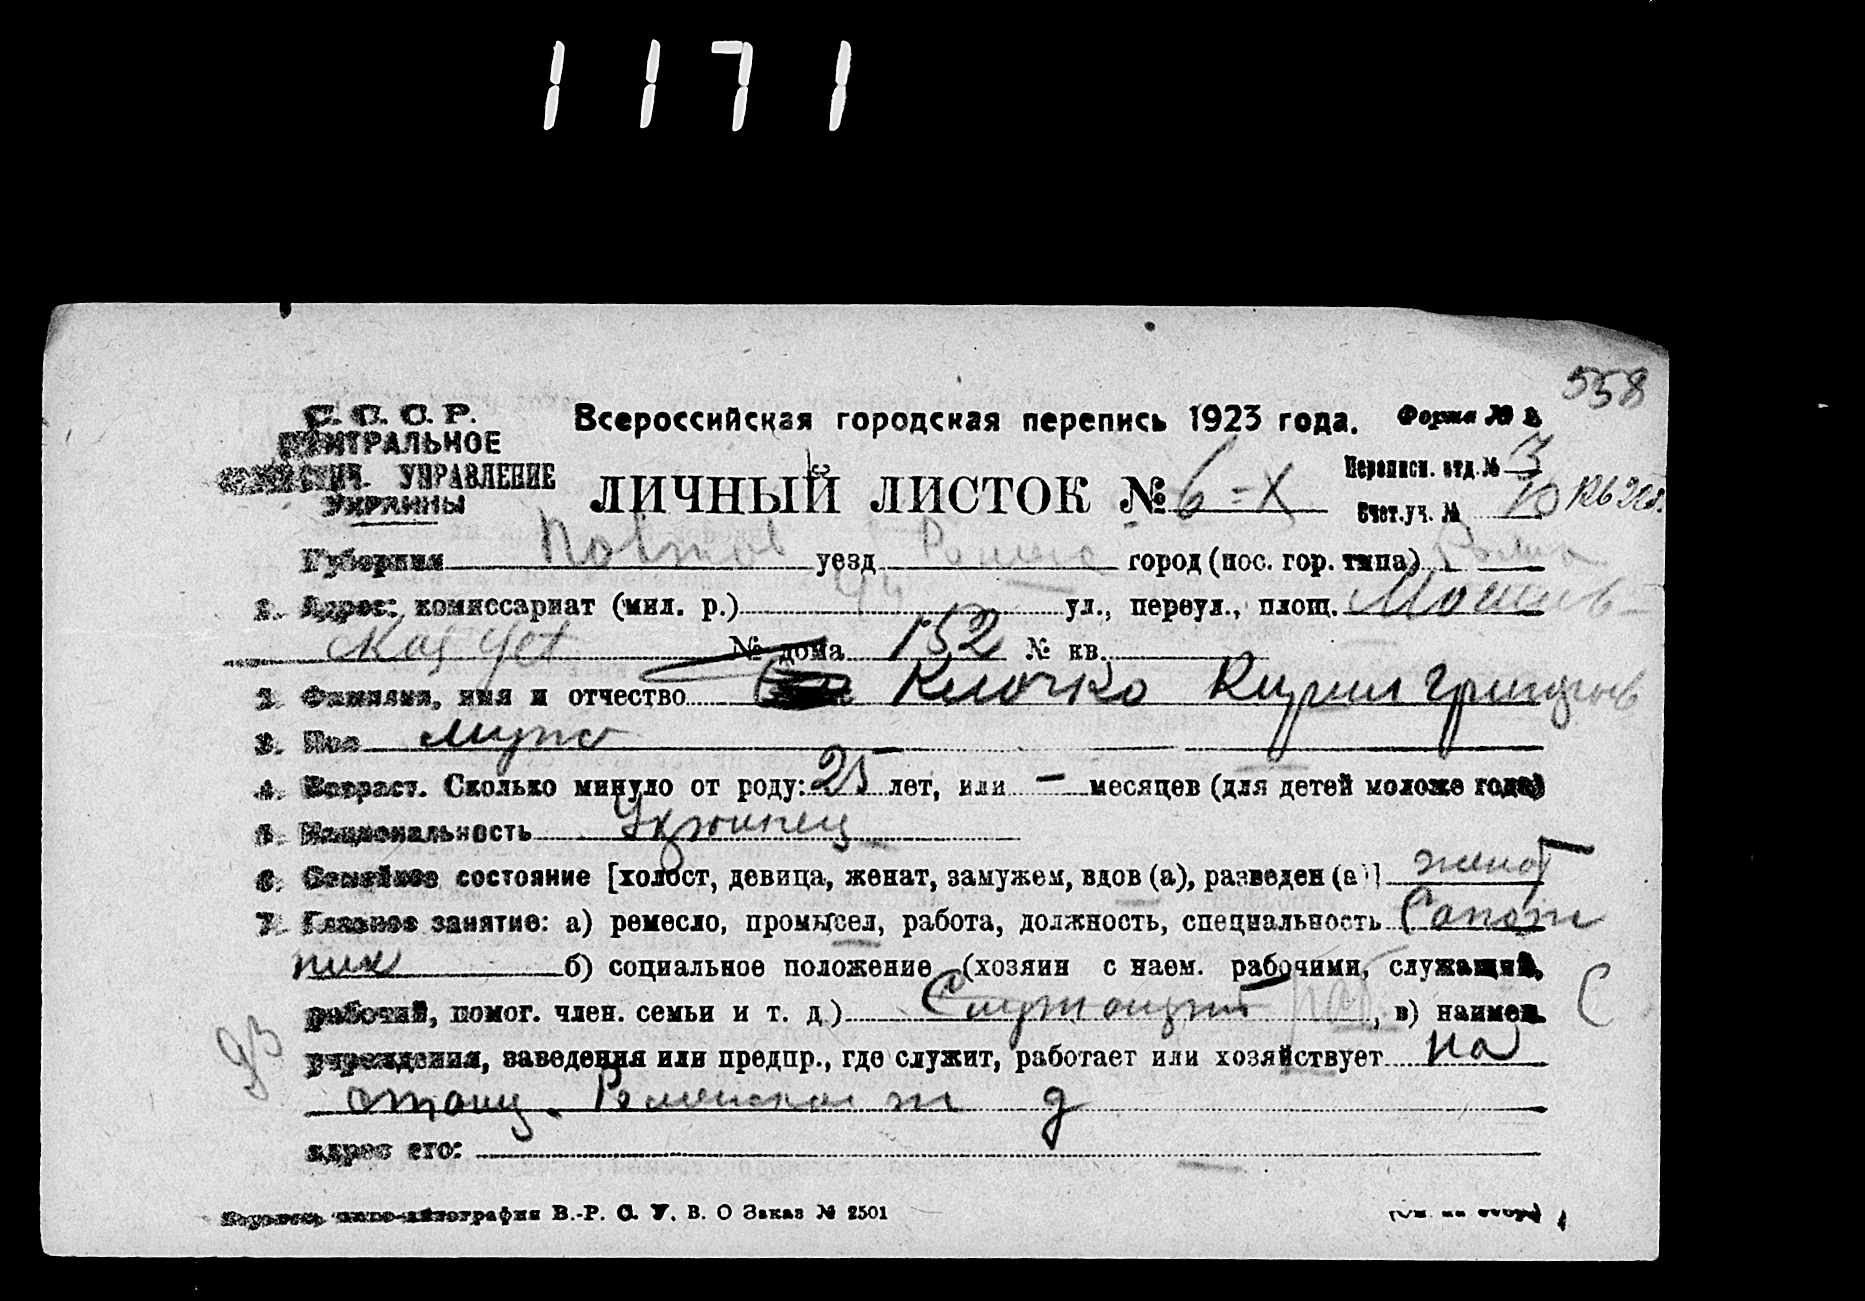 1171
558
С. С. С. Р.
ЦЕНТРАЛЬНОЕ
УПРАВЛЕНИЕ
УКРАИНЫ
Всероссийская городская перепись 1923 года. Форма №
ЛИЧНЫЙ ЛИСТОК № 6 = X
Переписн. отд. № 3
Счет. уч. № 10
Губерния Полтов уезд Ромен город (пос. гор. типа)
1. Адрес: комиссариат (мил. р.) ул., переул., площ.
№ дома 152 № кв.
2. Фамилия, имя и отчество Клочко Кирил Григорьев
3. Пол мужс
4. Возраст. Сколько минуло от роду: 25 лет, или — месяцев (для детей моложе года)
5. Национальность Украинец
6. Семейное состояние [холост, девица, женат, замужем, вдов (а), разведен (а)] женат
7. Главное занятие: а) ремесло, промысел, работа, должность, специальность Сапож
ник б) социальное положение (хозяин с наем. рабочими, служащий,
рабочий, помог. член. семьи и т. д.) Служащий раб , в) наимен. С
93
учреждения, заведения или предпр., где служит, работает или хозяйствует на
станц. Роменской ж д
адрес его:
типо-литография В.-Р. С. У. В. О Заказ № 2501
(См. на обор.)